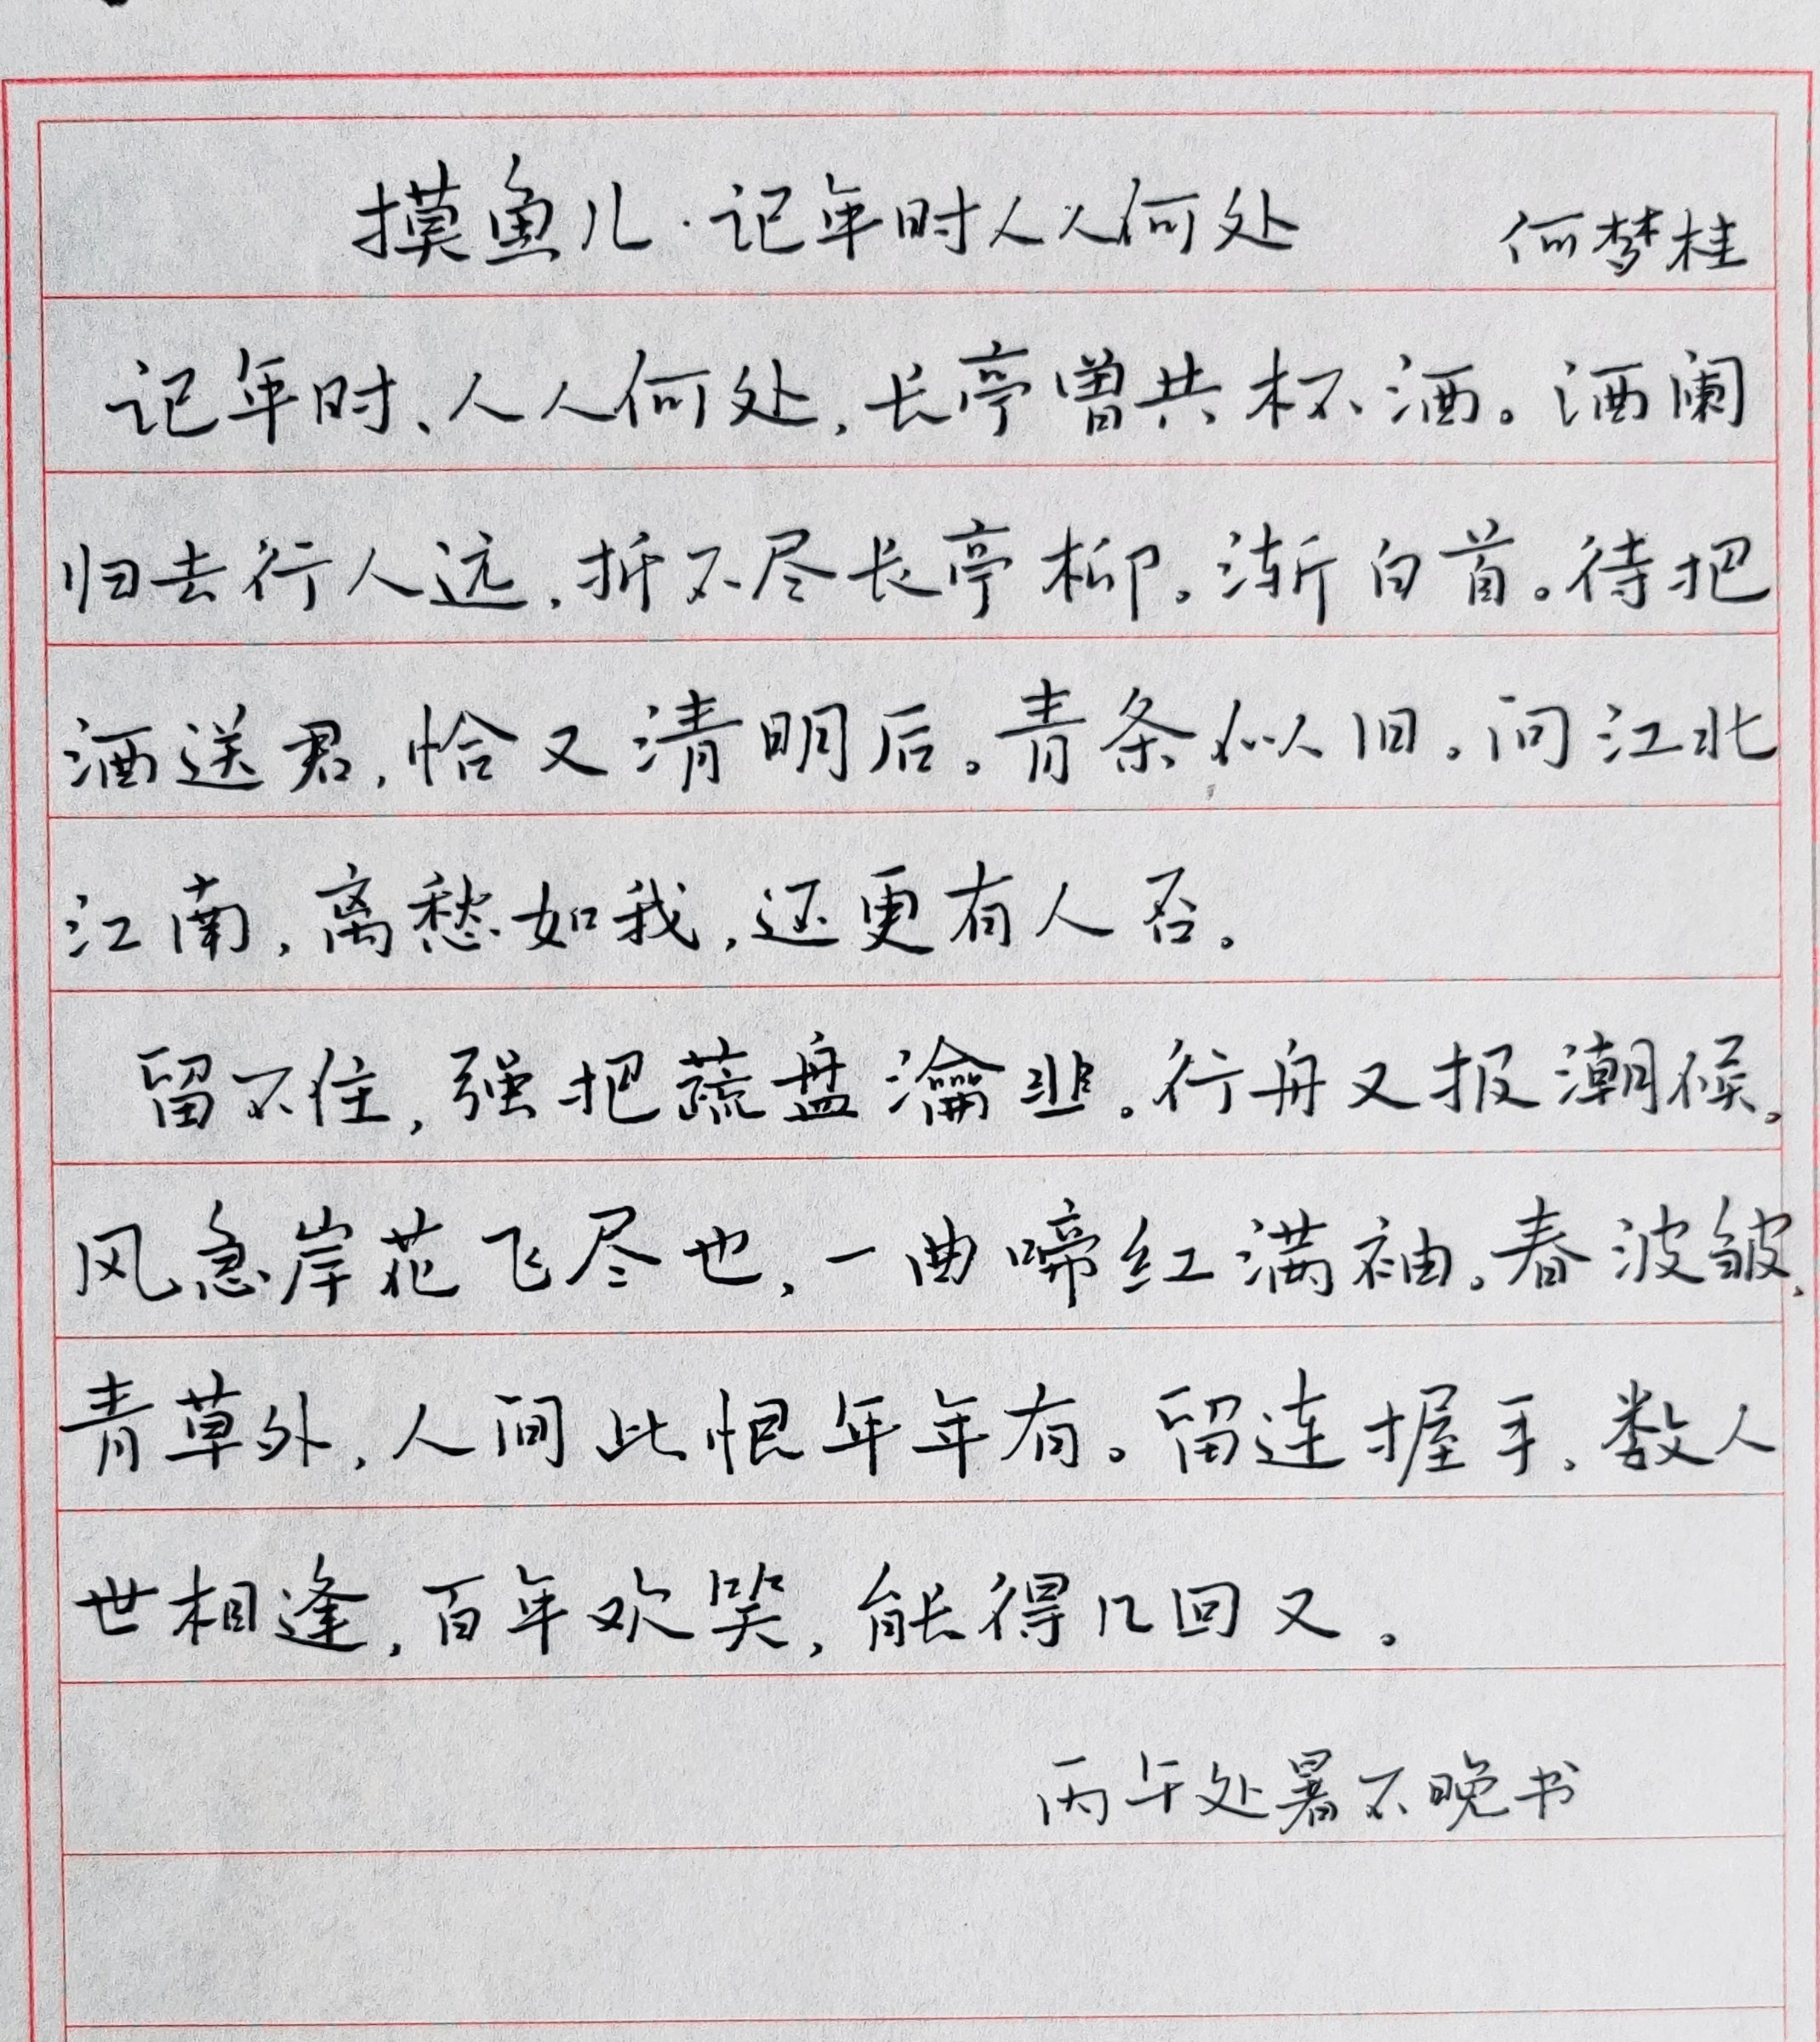 摸鱼儿·记年时人人何处 何梦桂
记年时、人人何处,长亭曾共杯酒。酒阑
归去行人远,折不尽长亭柳。渐白首。待把
酒送君,恰又清明后。青条似旧。问江北
江南,离愁如我,还更有人否。
留不住,强把蔬盘瀹韭。行舟又报潮候。
风急岸花飞尽也,一曲啼红满袖。春波皱,
青草外,人间此恨年年有。留连握手。数人
世相逢,百年欢笑,能得几回又。
丙午处暑不晚书